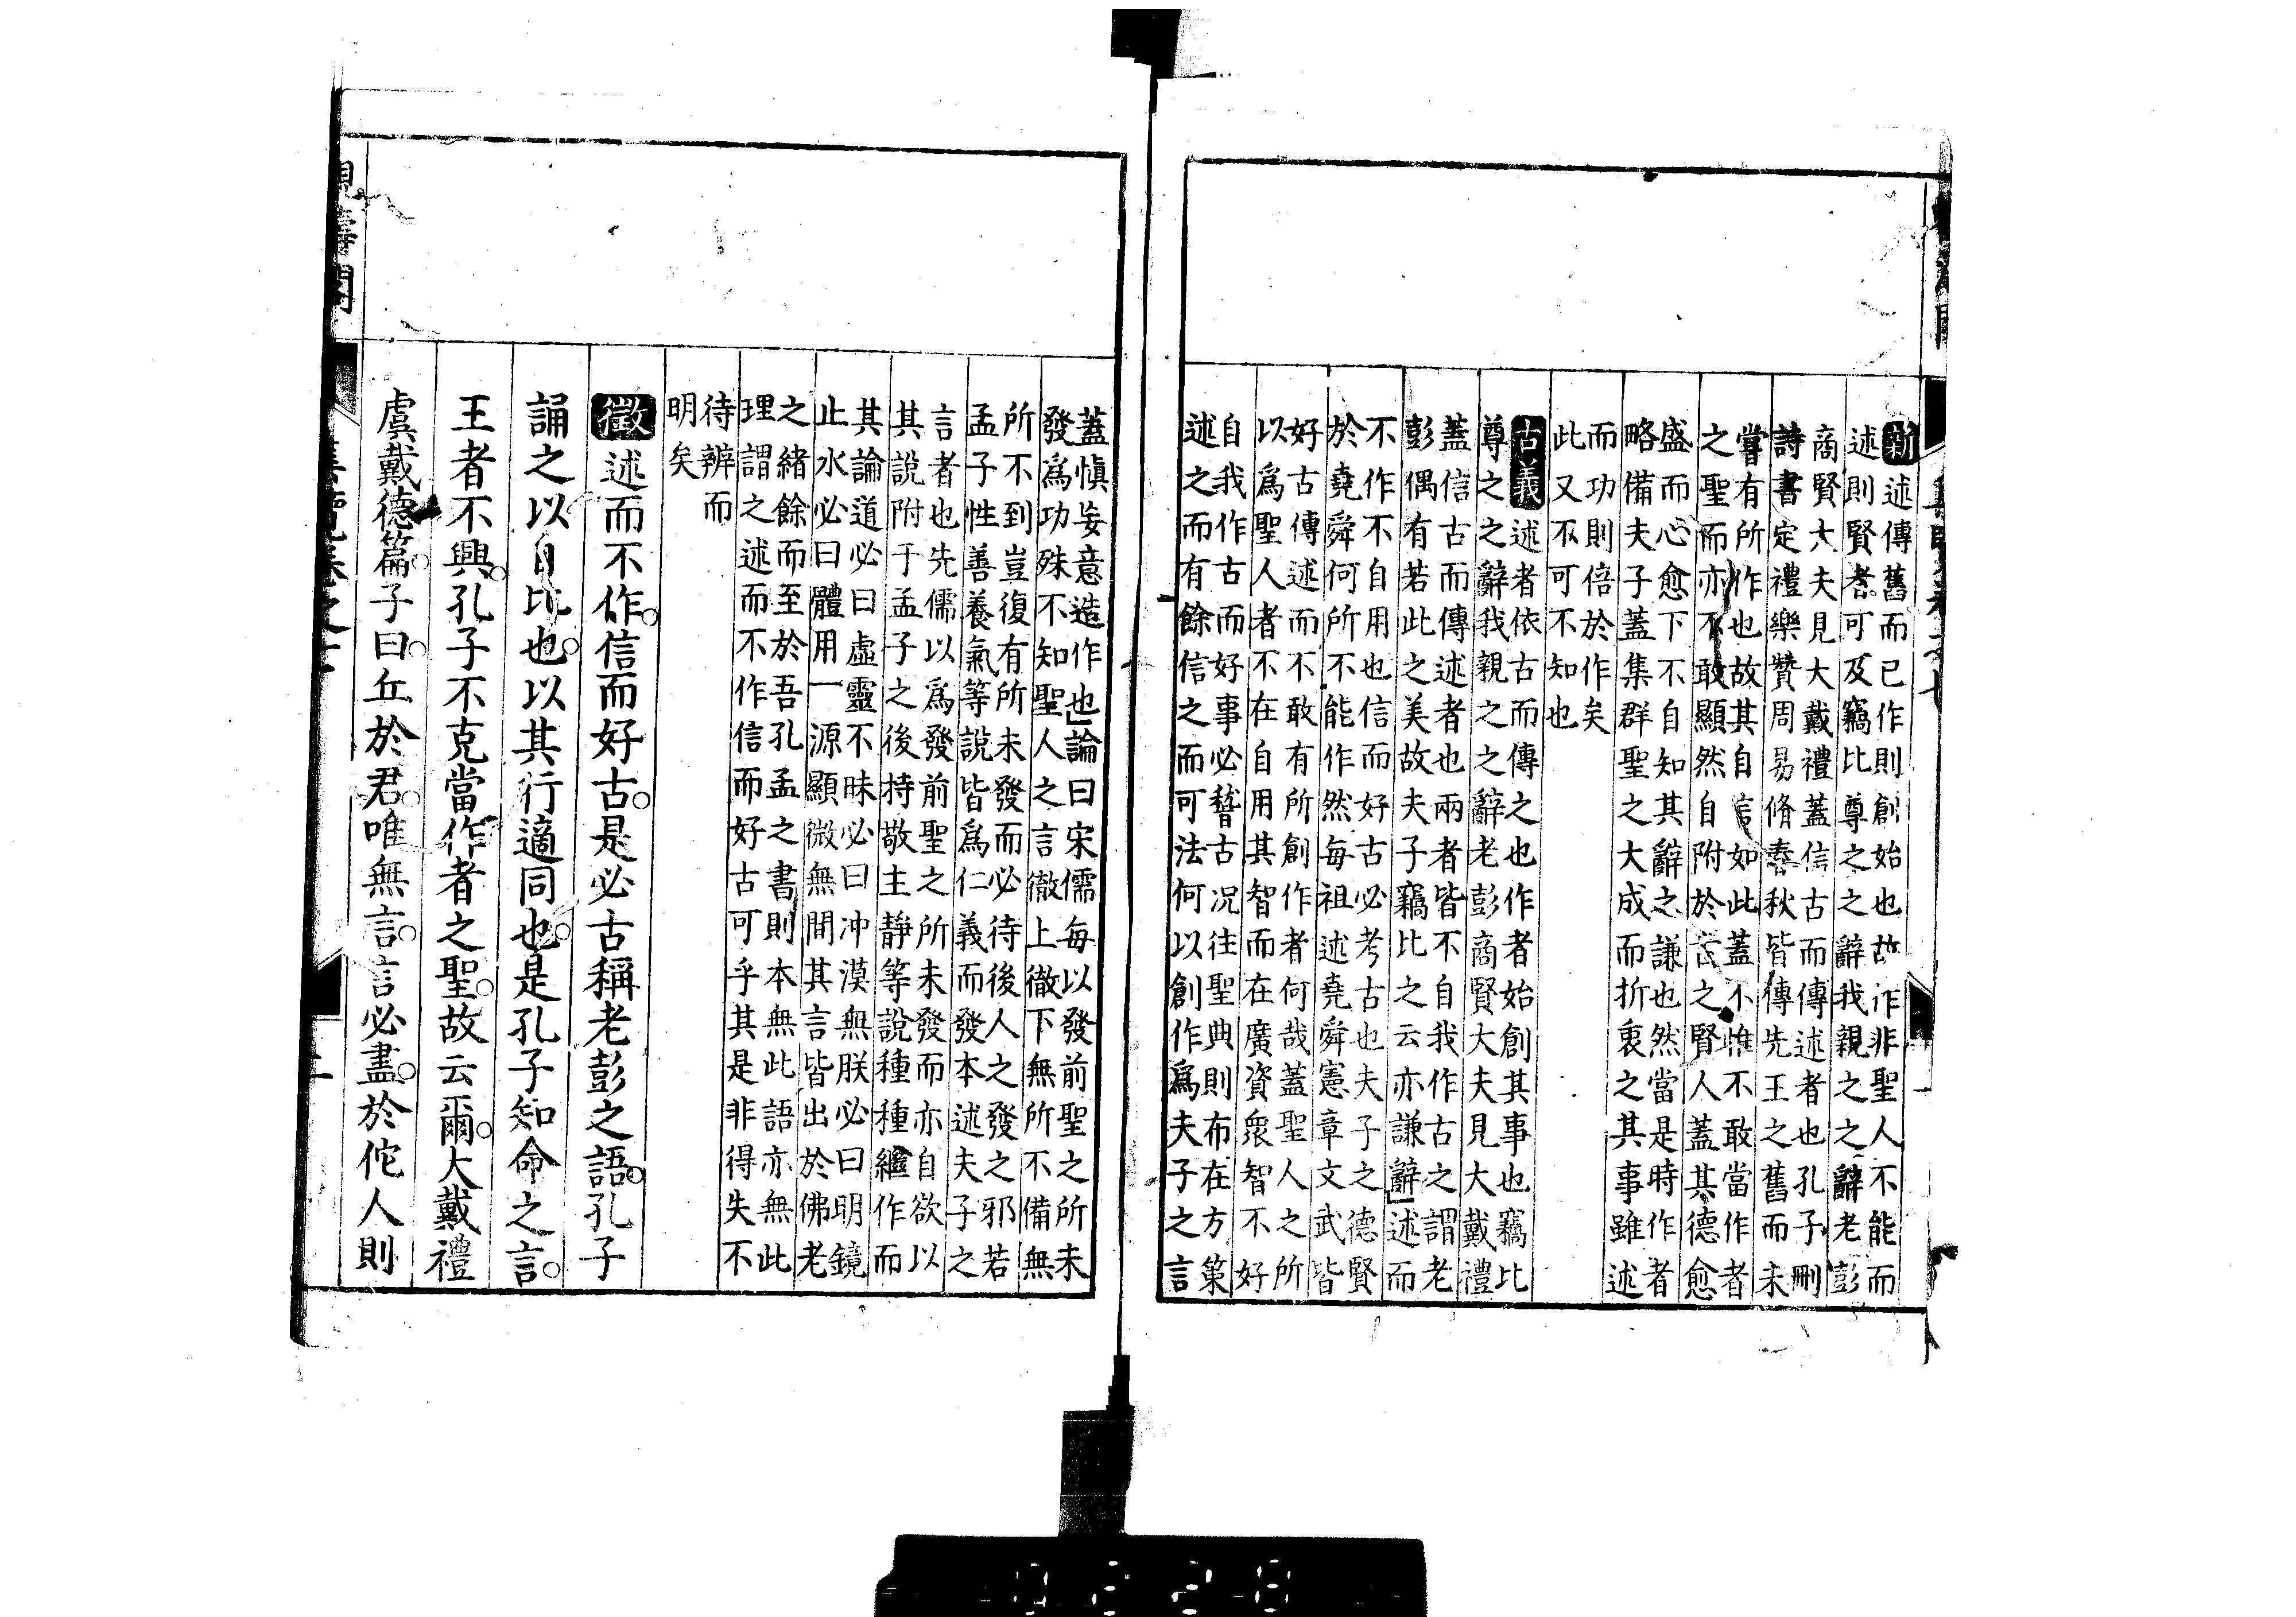 新
述傳舊而已作則創始也故作非聖人不能而
述則賢者可及竊比尊之之辭我親之之辭老彭
商賢大夫見大戴禮蓋信古而傳述者也孔子刪
詩書定禮樂贊周易脩春秋皆傳先王之舊而未
嘗有所作也故其自言如此蓋不惟不敢當作者
之聖而亦不敢顯然自附於古之賢人蓋其德愈
盛而心愈下不自知其辭之謙也然當是時作者
略備夫子蓋集群聖之大成而折衷之其事雖述
而功則倍於作矣
此又不可不知也
古義
述者依古而傳之也作者始創其事也竊比
尊之之辭我親之之辭老彭商賢大夫見大戴禮
蓋信古而傳述者也兩者皆不自我作古之謂老
彭偶有若此之美故夫子竊比之云亦謙辭述而
不作不自用也信而好古必考古也夫子之德賢
於堯舜何所不能作然每祖述堯舜憲章文武皆
好古傳述而不敢有所創作者何哉蓋聖人之所
以爲聖人者不在自用其智而在廣資衆智不好
自我作古而好事必稽古況往聖典則布在方策
述之而有餘信之而可法何以創作爲夫子之言
蓋愼妄意造作也論曰宋儒每以發前聖之所未
發爲功殊不知聖人之言徹上徹下無所不備無
所不到豈復有所未發而必待後人之發之邪若
孟子性善養氣等說皆爲仁義而發本述夫子之
言者也先儒以爲發前聖之所未發而亦自欲以
其說附于孟子之後持敬主靜等說種種繼作而
其論道必曰虛靈不昧必曰冲漠無朕必曰明鏡
止水必曰體用一源顯微無間其言皆出於佛老
之緒餘而至於吾孔孟之書則本無此語亦無此
理謂之述而不作信而好古可乎其是非得失不
待辨而
明矣
徵述而不作信而好古是必古稱老彭之語孔子
誦之以自比也以其行適同也是孔子知命之言
王者不興孔子不克當作者之聖故云爾大戴禮
虞戴德篇子曰丘於君唯無言言必盡於佗人則